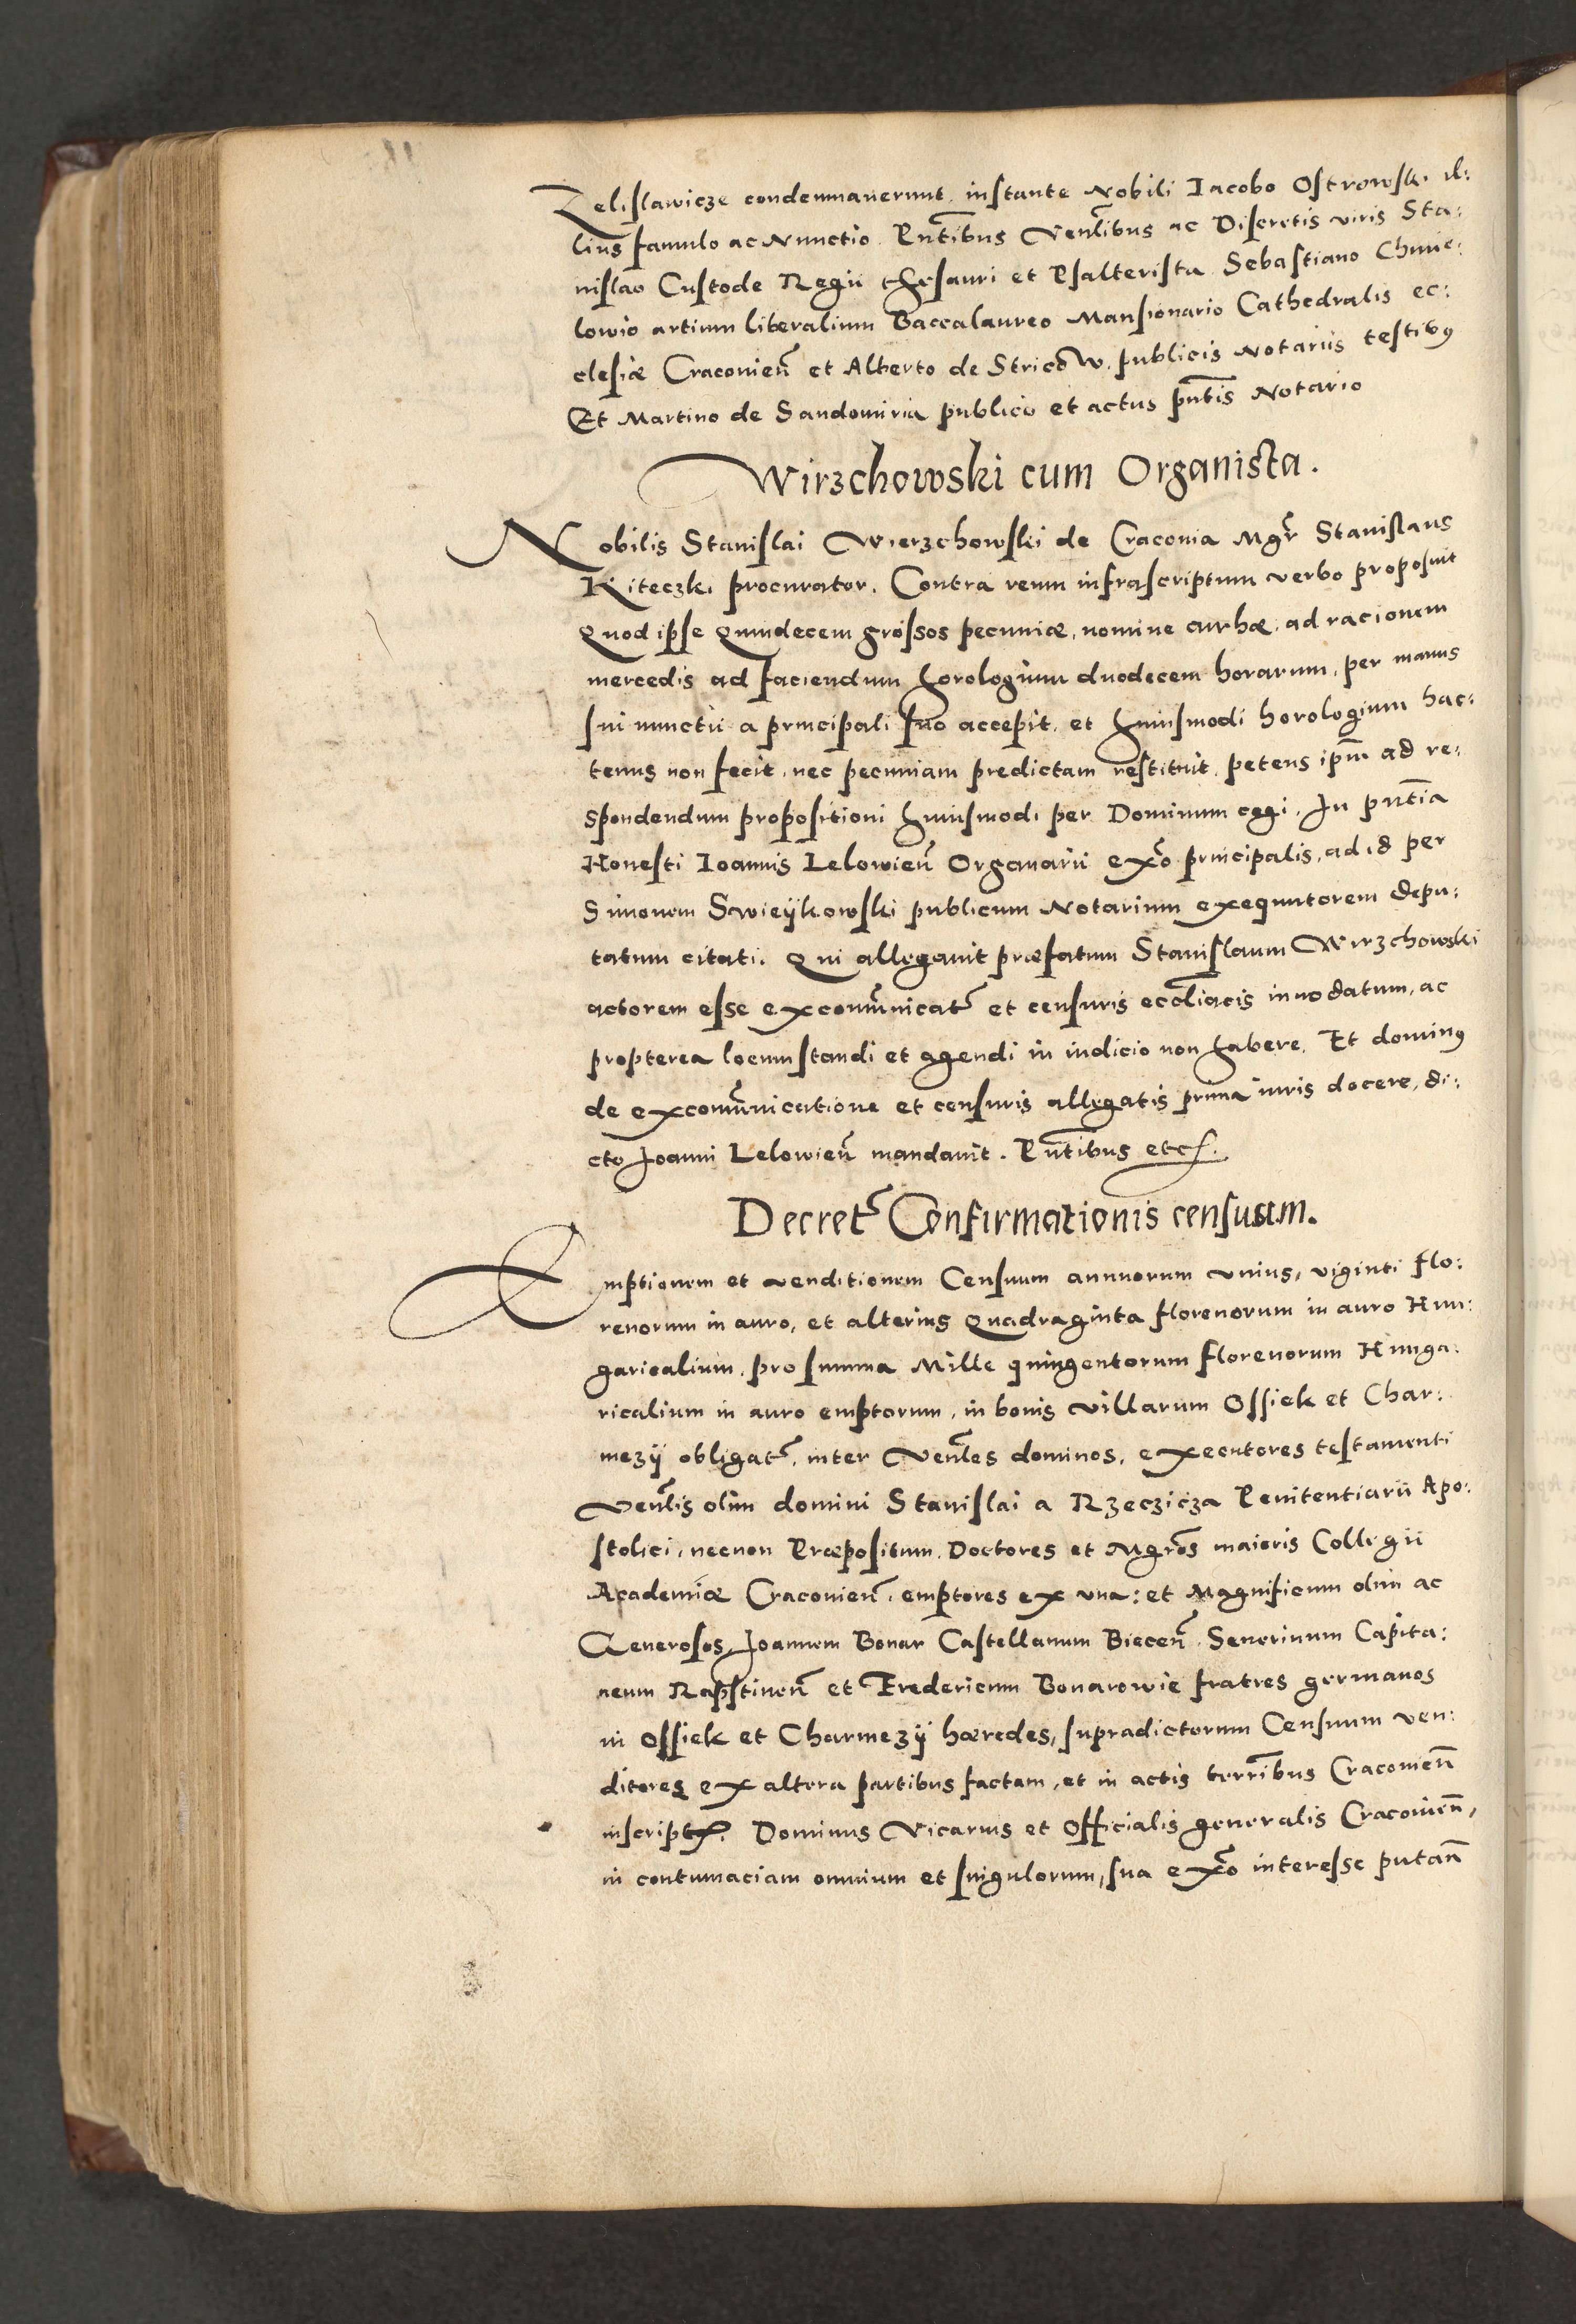 Zelislawicze condemnaverunt. instante Nobili Iacobo Ostrowski il:
lius famulo ac Nunctio. Pn̄tibus Ven̄libus ac Discretis viris Sta:
nislao Custode Regii thesauri et Psalterista Sebastiano Chmie:
lowio artium liberalium Baccalaureo Mansionario Cathedralis ec:
clesiæ Cracovien̄ et Alberto de Stricow. publicis Notariis testibꝰ
Et Martino de Sandomiria publico et actus pn̄tis Notario
Wirzchowski cum Organista.
Nobilis Stanislai Wierzchowski de Cracovia Mgr̄ Stanislaus
Kiteczki procurator. Contra reum infrascriptum verbo proposuit
Quod ipse Quindecem grossos pecuniæ, nomine arrhæ, ad racionem
mercedis ad faciendum horologium duodecem horarum, per manus
sui nunctii a principali suo accepit. et huiusmodi horologium hac:
tenus non fecit, nec pecuniam predictam restituit. petens ipm̄ ad re:
spondendum propositioni huiusmodi per Dominum cogi. In pn̄tia
Honesti Ioannis Lelowien̄ Organarii ex̄o principalis, ad id per
Simonem Swieykowski publicum Notarium exequutorem depu:
tatum citati. Qui allegavit præfatum Stanislaum Wirzchowski
actorem esse excom̄unicat̄ et censuris eccl̄iacis innodatum, ac
propterea locum standi et agendi in iudicio non habere. Et dominꝰ
de excom̄unicatione et censuris allegatis prima iuris docere, di:
cto Ioanni Lelowien̄ mandavit. Pn̄tibus etc.
Decret̄ Confirmationis censuum.
Emptionem et venditionem Censuum annuorum unius, viginti flo:
renorum in auro, et alterius Quadraginta florenorum in auro Hun:
garicalium, pro summa Mille quingentorum florenorum Hunga:
ricalium in auro emptorum, in bonis villarum Ossiek et Char:
mezy obligat̄, inter Ven̄les dominos, executores testamenti
Ven̄lis olim domini Stanislai a Rzeczicza Penitentiarii Apo:
stolici, necnon Præpositum. Doctores et Mgr̄os maioris Collegii
Academiæ Cracovien̄, emptores ex una: et Magnificum olim ac
Generosos, Ioannem Bonar Castellanum Biecen̄. Severinum Capita:
neum Rapstinen̄ et Fredericum Bonarowie fratres germanos
in Ossiek et Charmezy hæredes, supradictorum Censuum ven:
ditores ex altera partibus factam, et in actis terr̄ibus Cracovien̄
inscript. Dominus Vicarius et Officialis generalis Cracovien̄,
in contumaciam omnium et singulorum, sua ex̄o interesse putan̄